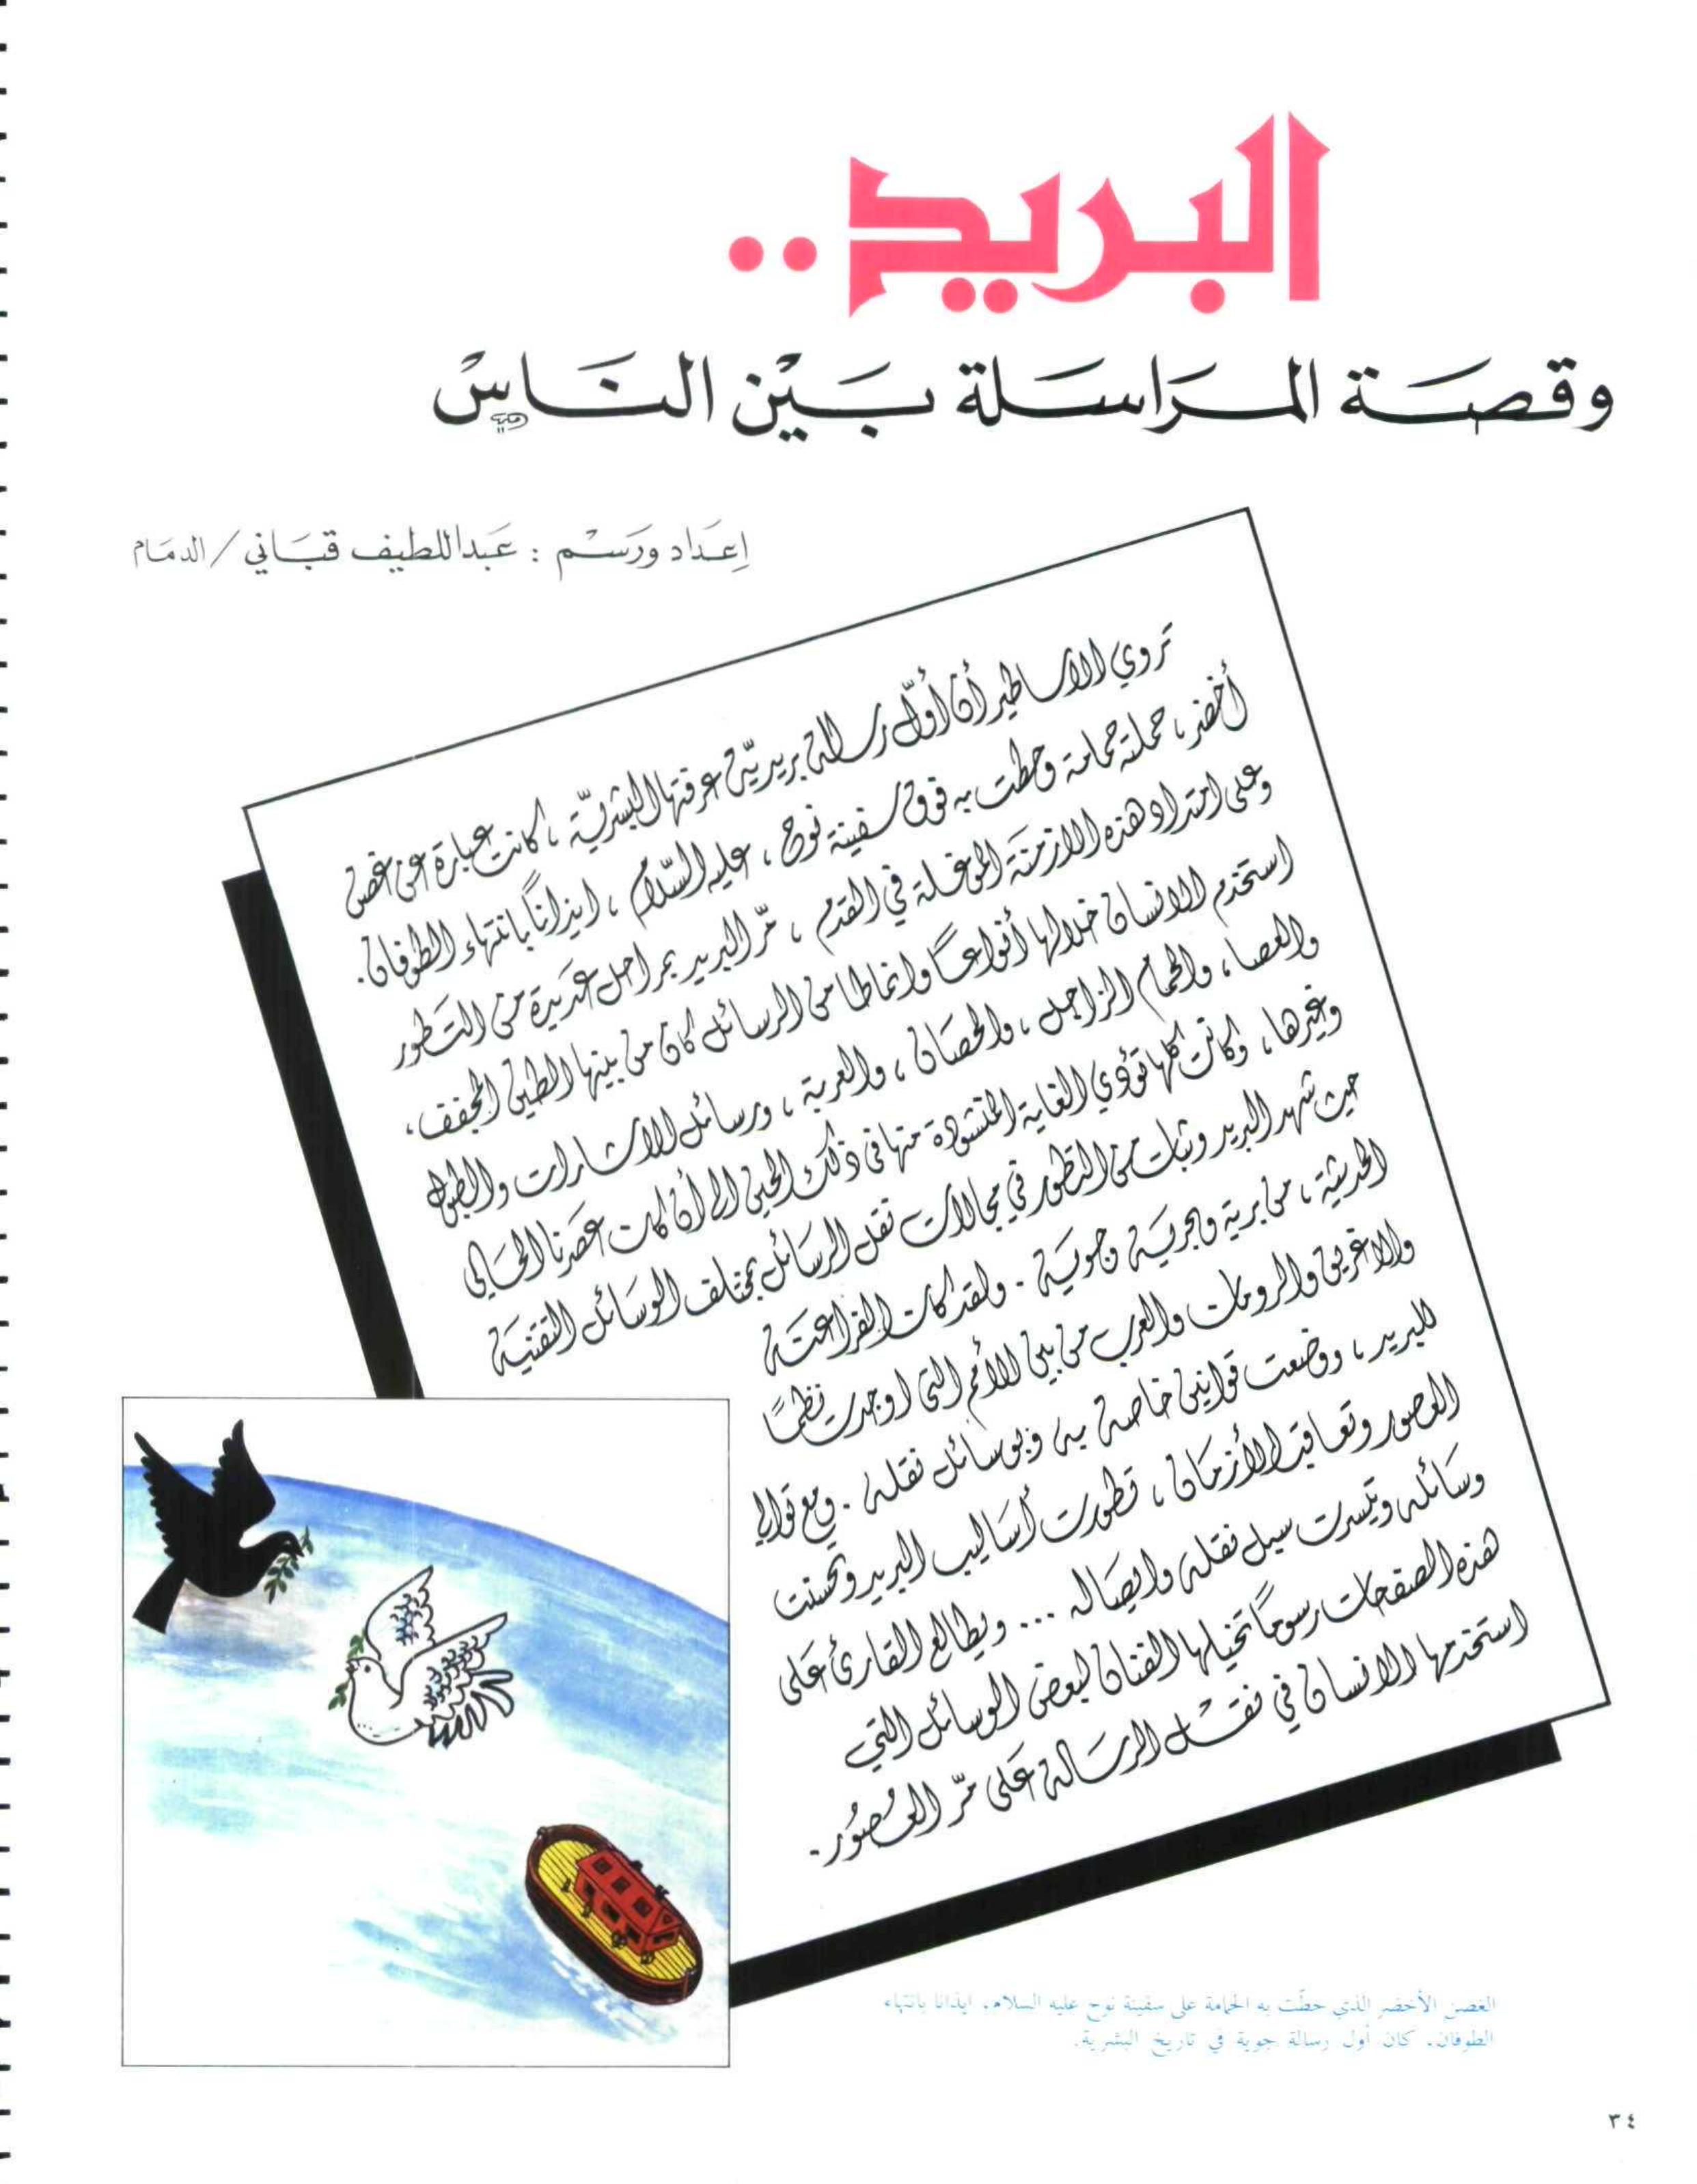 البريد..
وقصَة المَراسَلة بَيْن النَاسْ
إعَداد ورَسْم : عَبداللطيف قبَاني / الدمَام
تروي الاساطير أن أوّل رسالة بريديّة عرفتها البشريّة ، كانت عبارة عن غصن
أخضر ، حملته حمامة وحطت به فوق سفينة نوح ، عليه السّلام ، ايذاناً بانتهاء الطوفان.
وعلى امتداد هذه الازمنَة الموغلة في القدم ، مرّ البريد بمراحل عَديدة من التَطور
استخدم الانسان خلالها أنواعاً وانماطا من الرسائل كان من بينها الطين المجفف،
والعصا ، والحمام الزاجل ، والحصَان ، والعربة ، ورسائل الاشارات والطبول
وغيرها ، وكانت كلها تؤدي الغاية المنشودة منها في ذلك الحين الى أن كان عصَرنا الحَالي
حيث شهد البريد وثبات من التطور في مجالات نقل الرسَائل بمختلف الوسَائل التقنيَة
الحديثة ، من برية وبحريَة وجويَة . ولقد كان الفراعنَة
والاغريق والرومان والعرب من بين الأمم التي اوجدت نظماً
للبريد ، ووضعت قوانين خاصة به وبوسائل نقله . ومع توالي
العصور وتعاقب الأزمَان ، تطورت أسَاليب البريد وتحسنت
وسَائله وتيسرت سبل نقله وايصَاله ... ويطالع القارئ عَلى
هذه الصفحات رسوماً تخيلها الفنان لبعض الوسائل التي
استخدمها الانسان في نقَل الرسَالة عَلى مرّ العُصُور.
الغصن الأخضر الذي حطّت به الحمامة على سفينة نوح عليه السلام، ايذانا بانتهاء
الطوفان، كان أول رسالة جوية في تاريخ البشرية.
٣٤